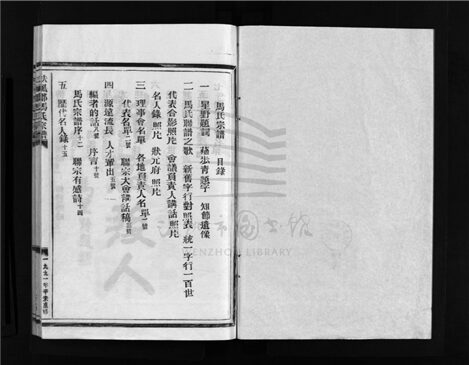 馬氏宗譜 目錄
一 星野題詞 蘇步青題字 知節遺像
二 馬氏聯譜之歌 新舊字行對照表 統一字行一百世
代表合影照片 會議負責人講話照片
名人錄照片 狀元府照片
三 理事會名單 各地負責人名單二號
代表名單二號 聯宗大會講話稿三號
四 源遠流長 人才輩出五號
編者的話八號 序言十號
馬氏宗譜序十二 聯宗有感詩十四
五 歷代名人錄十五
扶風郡馬氏宗譜
一九九一年辛未重修